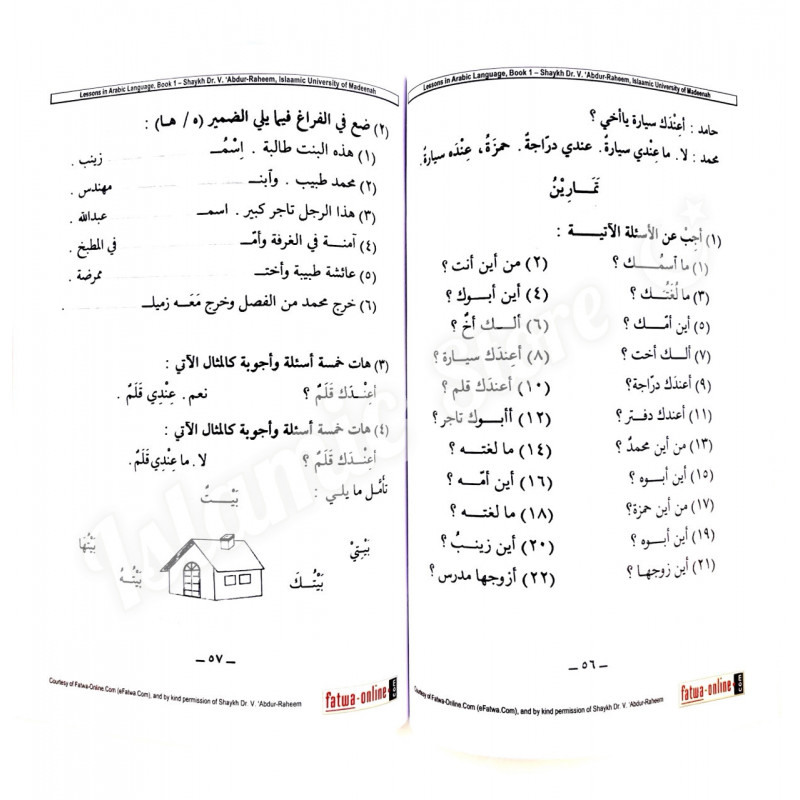 Lessons in Arabic Language, Book 1 – Shaykh Dr. V. ‘Abdur-Raheem, Islaamic University of Madeenah
حامد : أعِنْدَك سيارة ياأخي ؟
محمد : لا. ما عِنْدي سيارةٌ. عندي درّاجةٌ. حمزةُ، عِنْده سيارةٌ.
تَمَارِيْنُ
(١) أجِبْ عن الأسئلة الآتيـــة :
(١) ما آسمُـك ؟ (٢) من أين أنت ؟
(٣) ما لُغَتُـك ؟ (٤) أين أبـوك ؟
(٥) أين أمّـك ؟ (٦) ألـك أخٌ ؟
(٧) ألـك أخت ؟ (٨) أعِندَك سيارة ؟
(٩) أعندَك درّاجة؟ (١٠) أعندَك قلم ؟
(١١) أعندك دفتر ؟ (١٢) أأبـوك تاجر ؟
(١٣) من أين محمدٌ ؟ (١٤) ما لغته ؟
(١٥) أين أبـوه ؟ (١٦) أين أمّـه ؟
(١٧) من أين حمزة؟ (١٨) ما لغتـه ؟
(١٩) أين أبـوه ؟ (٢٠) أين زينبُ ؟
(٢١) أين زوجها ؟ (٢٢) أزوجها مدرس ؟
– ٥٦ –
Courtesy of Fatwa-Online.Com (eFatwa.Com), and by kind permission of Shaykh Dr. V. ‘Abdur-Raheem
fatwa-online.com
Lessons in Arabic Language, Book 1 – Shaykh Dr. V. ‘Abdur-Raheem, Islaamic University of Madeenah
(٢) ضع في الفراغ فيما يلي الضمير (ه / ها) :
(١) هذه البنت طالبة . اِسْمُــ زينب .
(٢) محمد طبيب . وآبنــ مهندس .
(٣) هذا الرجل تاجر كبير . اسمــ عبدالله .
(٤) آمنـة في الغرفة وأمّــ في المطبخ .
(٥) عائشة طبيبة وأختــ ممرضة .
(٦) خرج محمد من الفصل وخرج مَعَـه زميلــ .
(٣) هات خمسة أسئلة وأجوبة كالمثال الآتي :
أعِنْـدَك قَلَمٌ ؟ نعم. عِنْدِي قَلَمٌ.
(٤) هات خمسة أسئلة وأجوبة كالمثال الآتي :
أعِنْـدَك قَلَمٌ ؟ لا. ما عِنْدِي قَلَمٌ.
تأمّل ما يلي : بَيْـــتٌ
بَيْتِيْ
بَيْتُـكَ
بَيْتُـهُ
بَيْتُهَا
– ٥٧ –
Courtesy of Fatwa-Online.Com (eFatwa.Com), and by kind permission of Shaykh Dr. V. ‘Abdur-Raheem
fatwa-online.com
Islamic Store